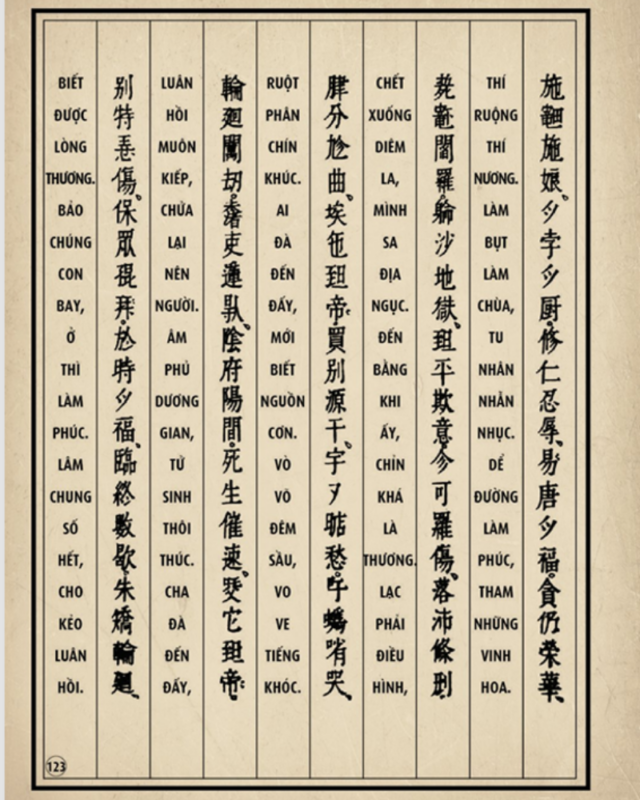 施施娘。孛厨。修仁忍辱。易唐福。貪仍榮華。
THÍ RUỘNG THÍ NƯƠNG. LÀM BỤT LÀM CHÙA, TU NHÂN NHẪN NHỤC. DỂ ĐƯỜNG LÀM PHÚC, THAM NHỮNG VINH HOA.
閻羅。沙地獄。平欺意。可羅傷。落沛條刑。
CHẾT XUỐNG DIÊM LA, MÌNH SA ĐỊA NGỤC. ĐẾN BẰNG KHI ẤY, CHỈN KHÁ LÀ THƯƠNG. LẠC PHẢI ĐIỀU HÌNH,
分曲。埃帝。買别源干。宇愁。哨哭。
RUỘT PHÂN CHÍN KHÚC. AI ĐÀ ĐẾN ĐẤY, MỚI BIẾT NGUỒN CƠN. VÒ VÕ ĐÊM SẦU, VO VE TIẾNG KHÓC.
輪廻。吏。陰府陽間。死生催速。它帝。
LUÂN HỒI MUÔN KIẾP, CHỨA LẠI NÊN NGƯỜI. ÂM PHỦ DƯƠNG GIAN, TỬ SINH THÔI THÚC. CHA ĐÀ ĐẾN ĐẤY,
别特傷。保眾。於時福。臨終數歇。朱矯輪廻。
BIẾT ĐƯỢC LÒNG THƯƠNG. BẢO CHÚNG CON BAY, Ở THÌ LÀM PHÚC. LÂM CHUNG SỐ HẾT, CHO KẺO LUÂN HỒI.
123